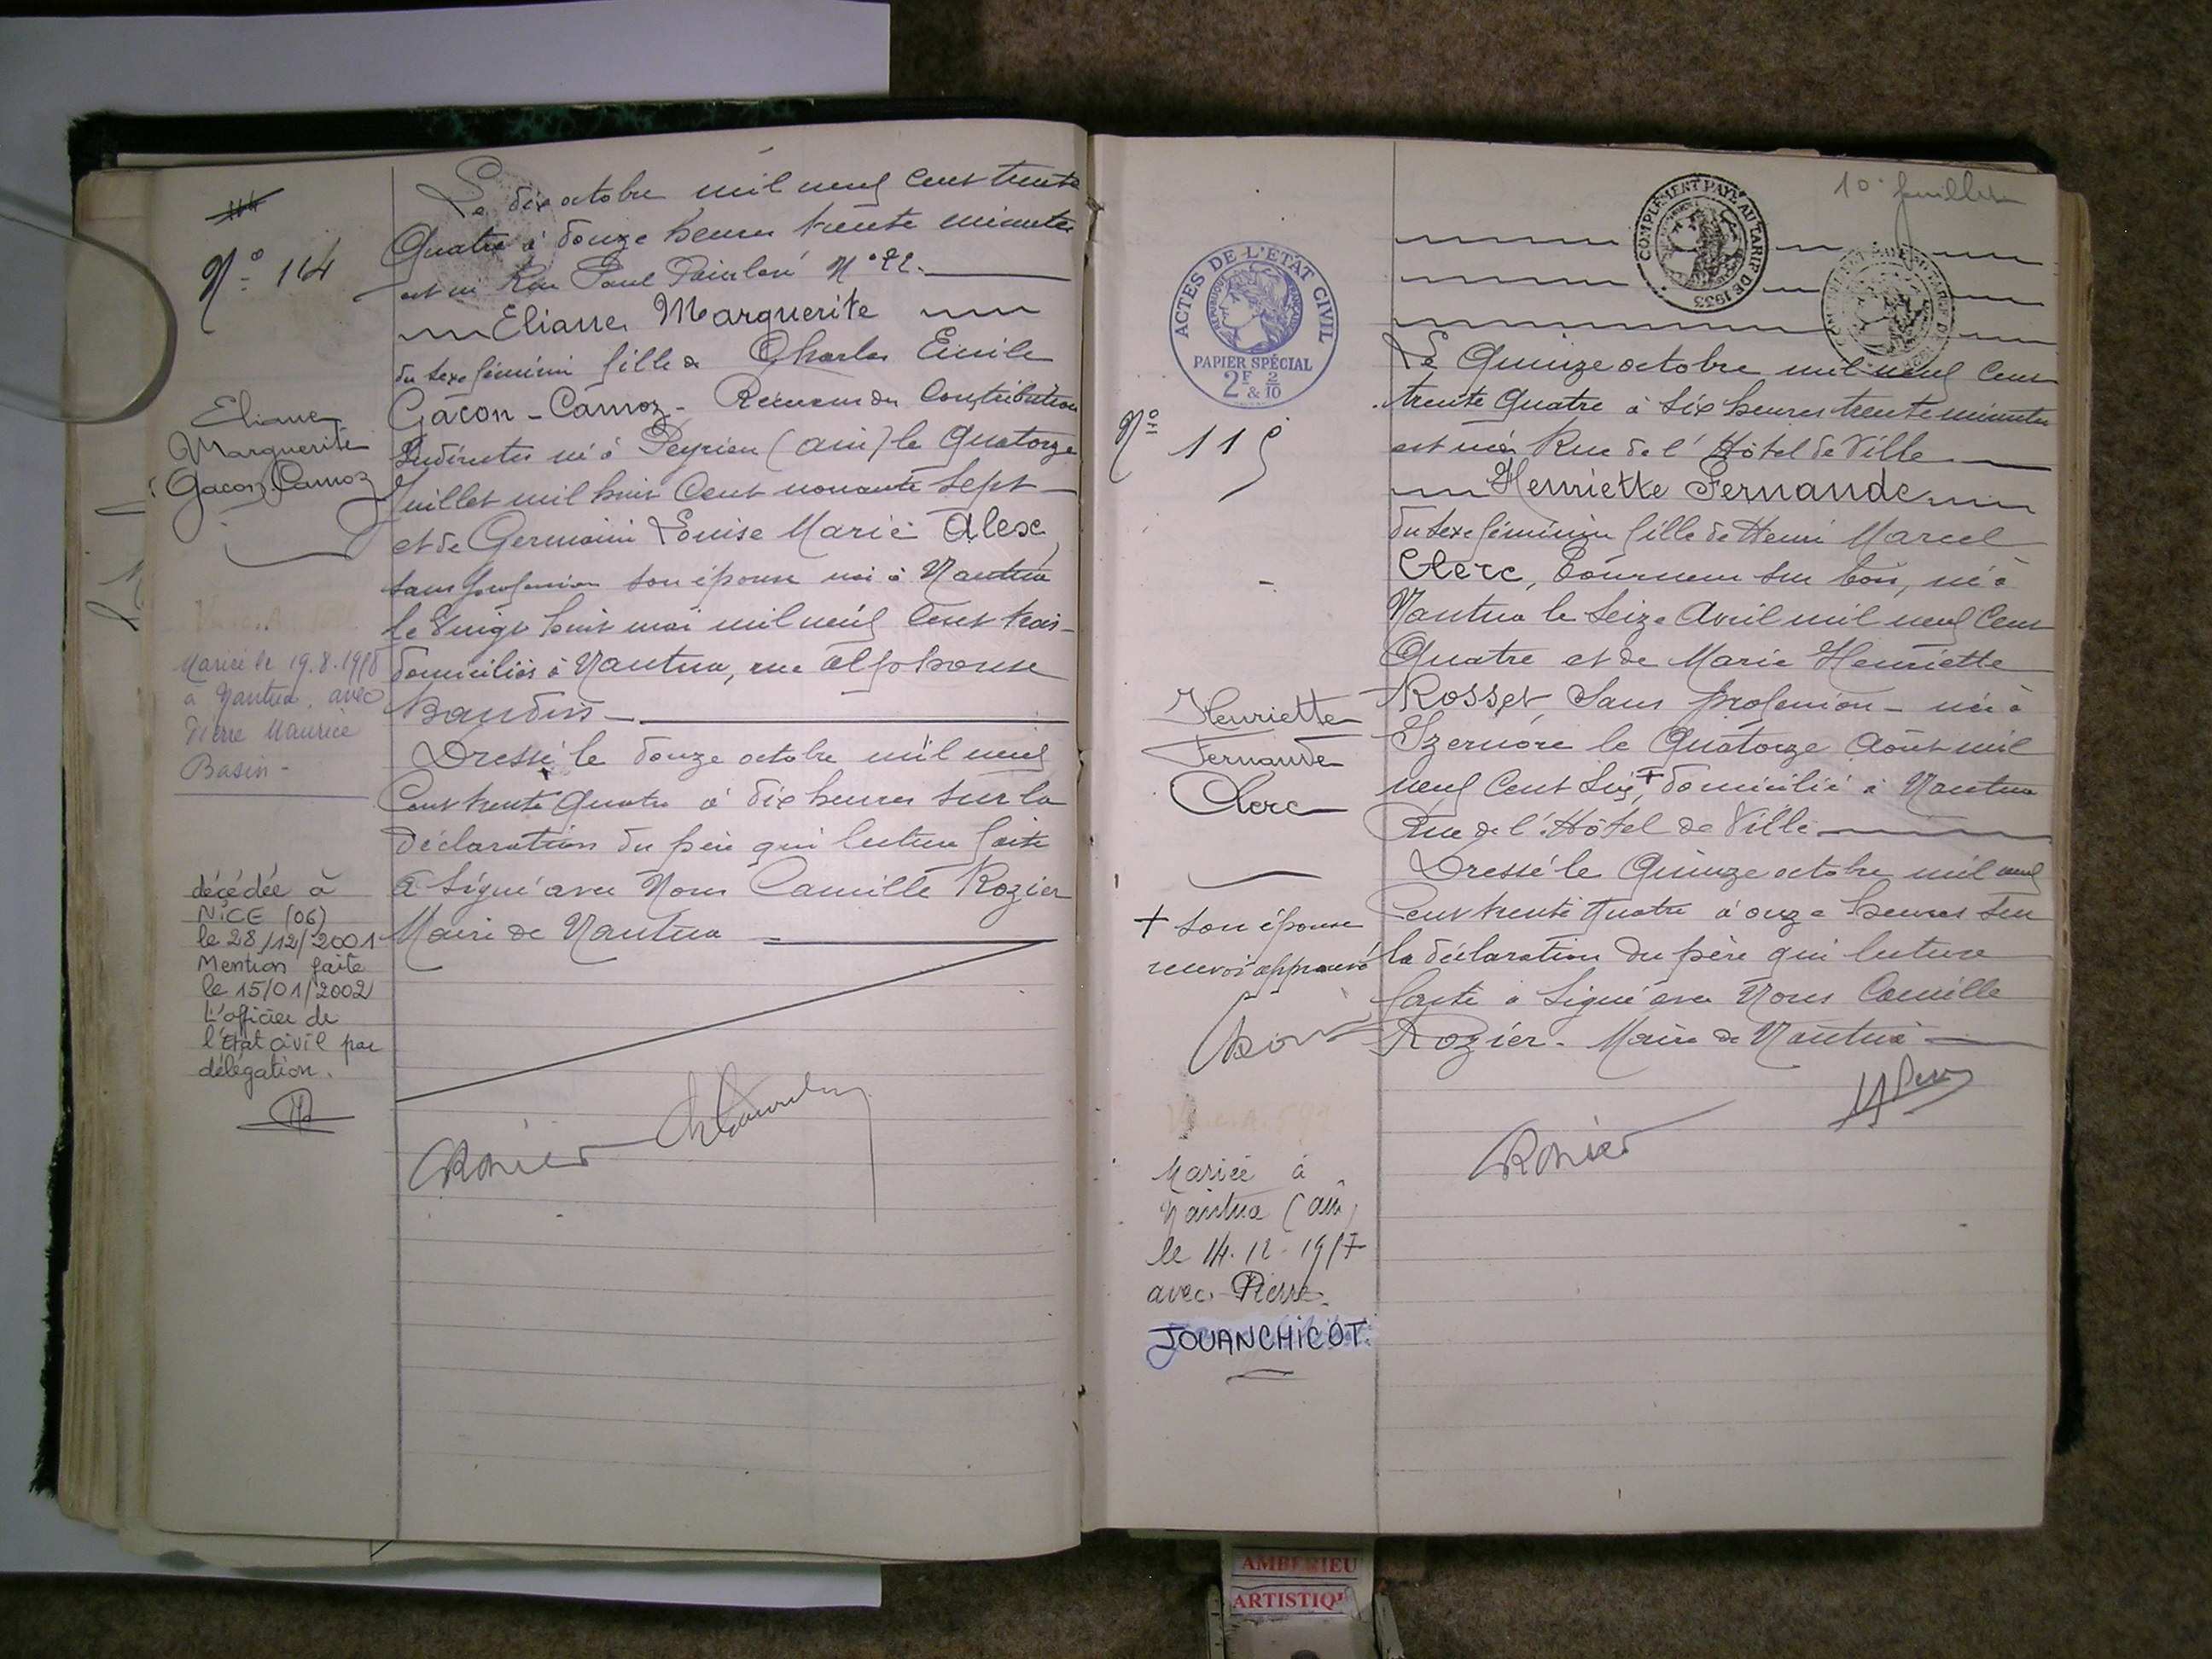 N° 114
Eliane
Marguerite
Gacon-Camoz
Mariée le 19.8.1958
à Nantua, avec
Pierre Maurice
Basin -
décédée à
NICE (06)
le 28/12/2001
Mention faite
le 15/01/2002
L'officier de
l'Etat civil par
délégation.
Le dix octobre mil neuf cent trente
Quatre à douze heures trente minutes
est née Rue Paul Painlevé N° 22.
Eliane Marguerite
du sexe féminin fille de Charles Emile
Gacon-Camoz - Receveur des Contributions
Indirectes né à Peyrieu (ain) le Quatorze
Juillet mil huit Cent nonante sept
et de Germaine Louise Marie Alex
sans profession son épouse née à Nantua
le Vingt huit mai mil neuf Cent trois -
domiciliés à Nantua, rue Alphonse
Baudin -
Dressé le douze octobre mil neuf
Cent trente Quatre à dix heures sur la
déclaration du père qui lecture faite
a signé avec Nous Camille Rozier
Maire de Nantua
CRozier
10e feuillet
COMPLÉMENT PAYÉ AU TARIF DE 1933
ACTES DE L'ÉTAT CIVIL
RÉPUBLIQUE FRANÇAISE
PAPIER SPÉCIAL
2F & 2/10
N° 115
Henriette
Fernande
Clerc
+ son épouse
renvoi approuvé
Mariée à
Nantua (ain)
le 14.12.1957
avec Pierre
JOUANCHICOT.
Le Quinze octobre mil neuf Cent
trente Quatre à six heures trente minutes
est née Rue de l'Hôtel de Ville
Henriette Fernande
du sexe féminin fille de Henri Marcel
Clerc, tourneur sur bois, né à
Nantua le seize Avril mil neuf Cent
Quatre et de Marie Henriette
Rosset, Sans profession - née à
Izernore le Quatorze Août mil
neuf Cent six, + domicilié à Nantua
Rue de l'Hôtel de Ville
Dressé le Quinze octobre mil neuf
Cent trente Quatre à onze heures sur
la déclaration du père qui lecture
faite a signé avec Nous Camille
Rozier - Maire de Nantua
CRozier
AMBERIEU
ARTISTIQU